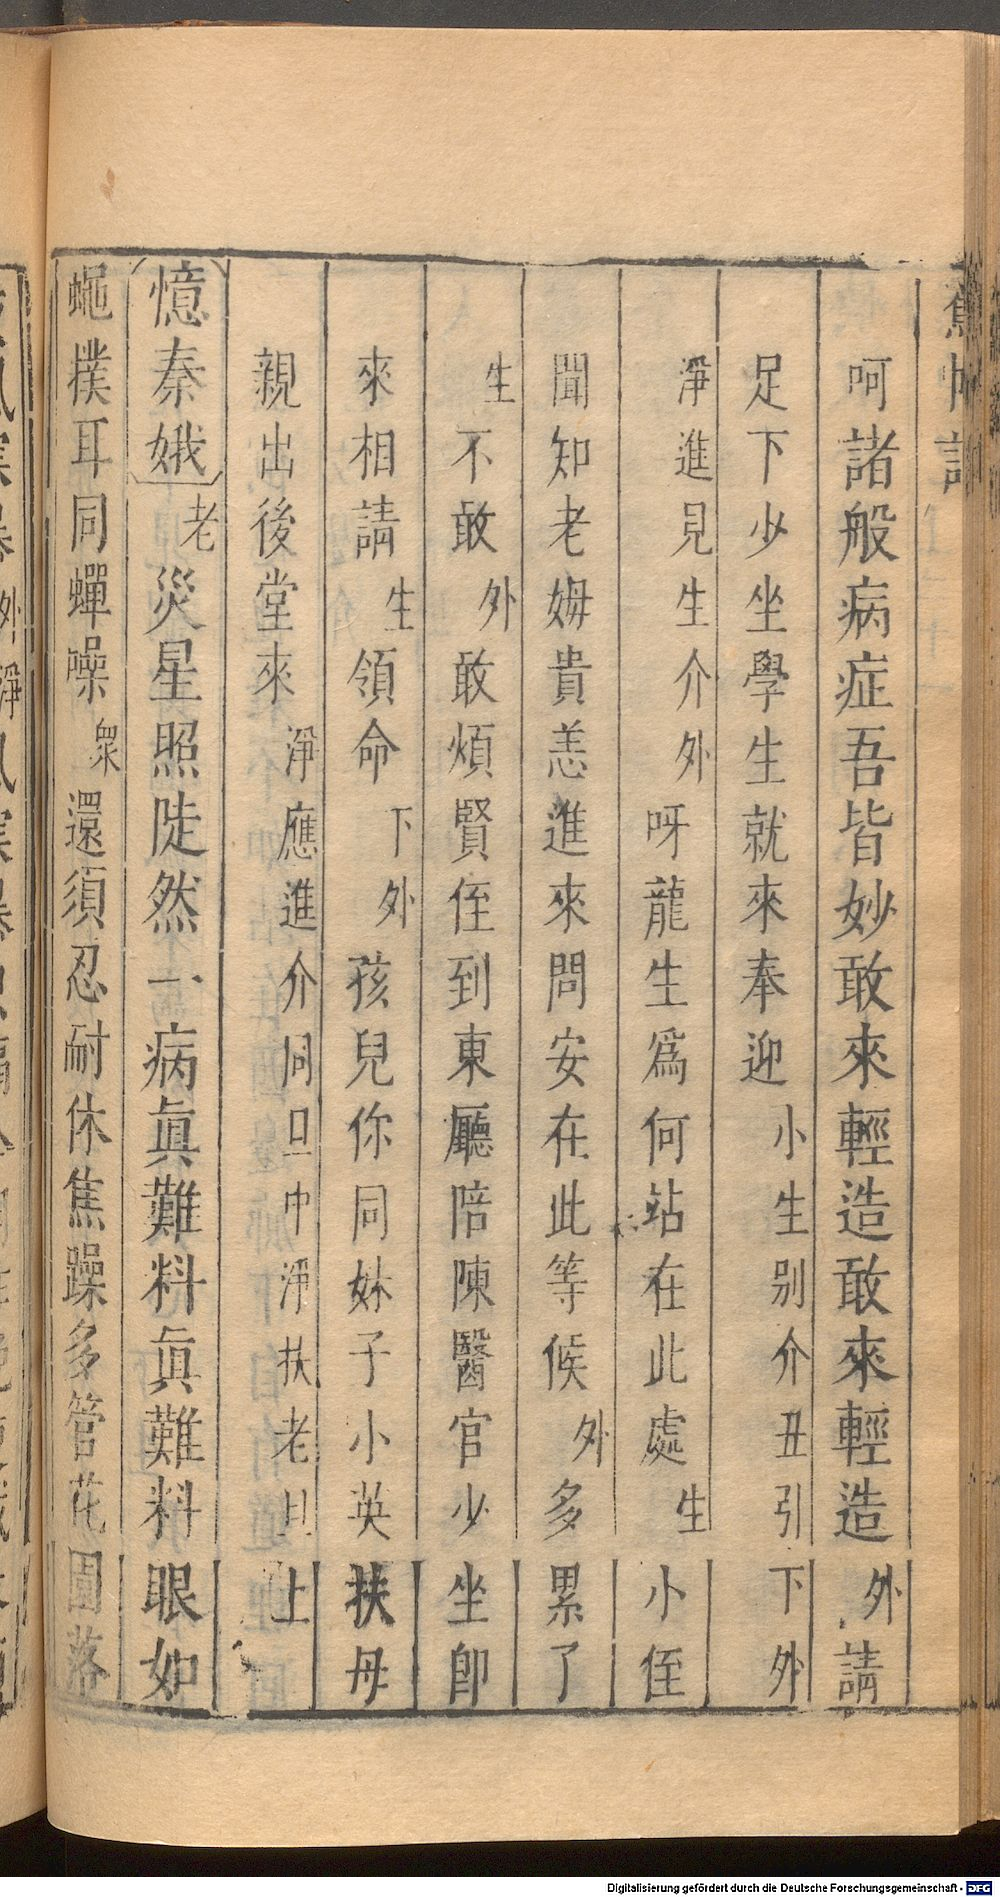 蕉帕記
呵諸般病症吾皆妙敢來輕造敢來輕造外請
足下少坐學生就來奉迎小生别介丑引下外
淨進見生介外呀龍生爲何站在此處生小侄
聞知老姆貴恙進來問安在此等候外多累了
生不敢外敢煩賢侄到東廳陪陳醫官少坐卽
來相請生領命下外孩兒你同妹子小英扶母
親出後堂來淨應進介同旦中淨扶老旦上
憶秦娥老災星照陡然一病眞難料眞難料眼如
蠅撲耳同蟬噪衆還須忍耐休焦躁多管花園落
Digitalisierung gefördert durch die Deutsche Forschungsgemeinschaft - DFG